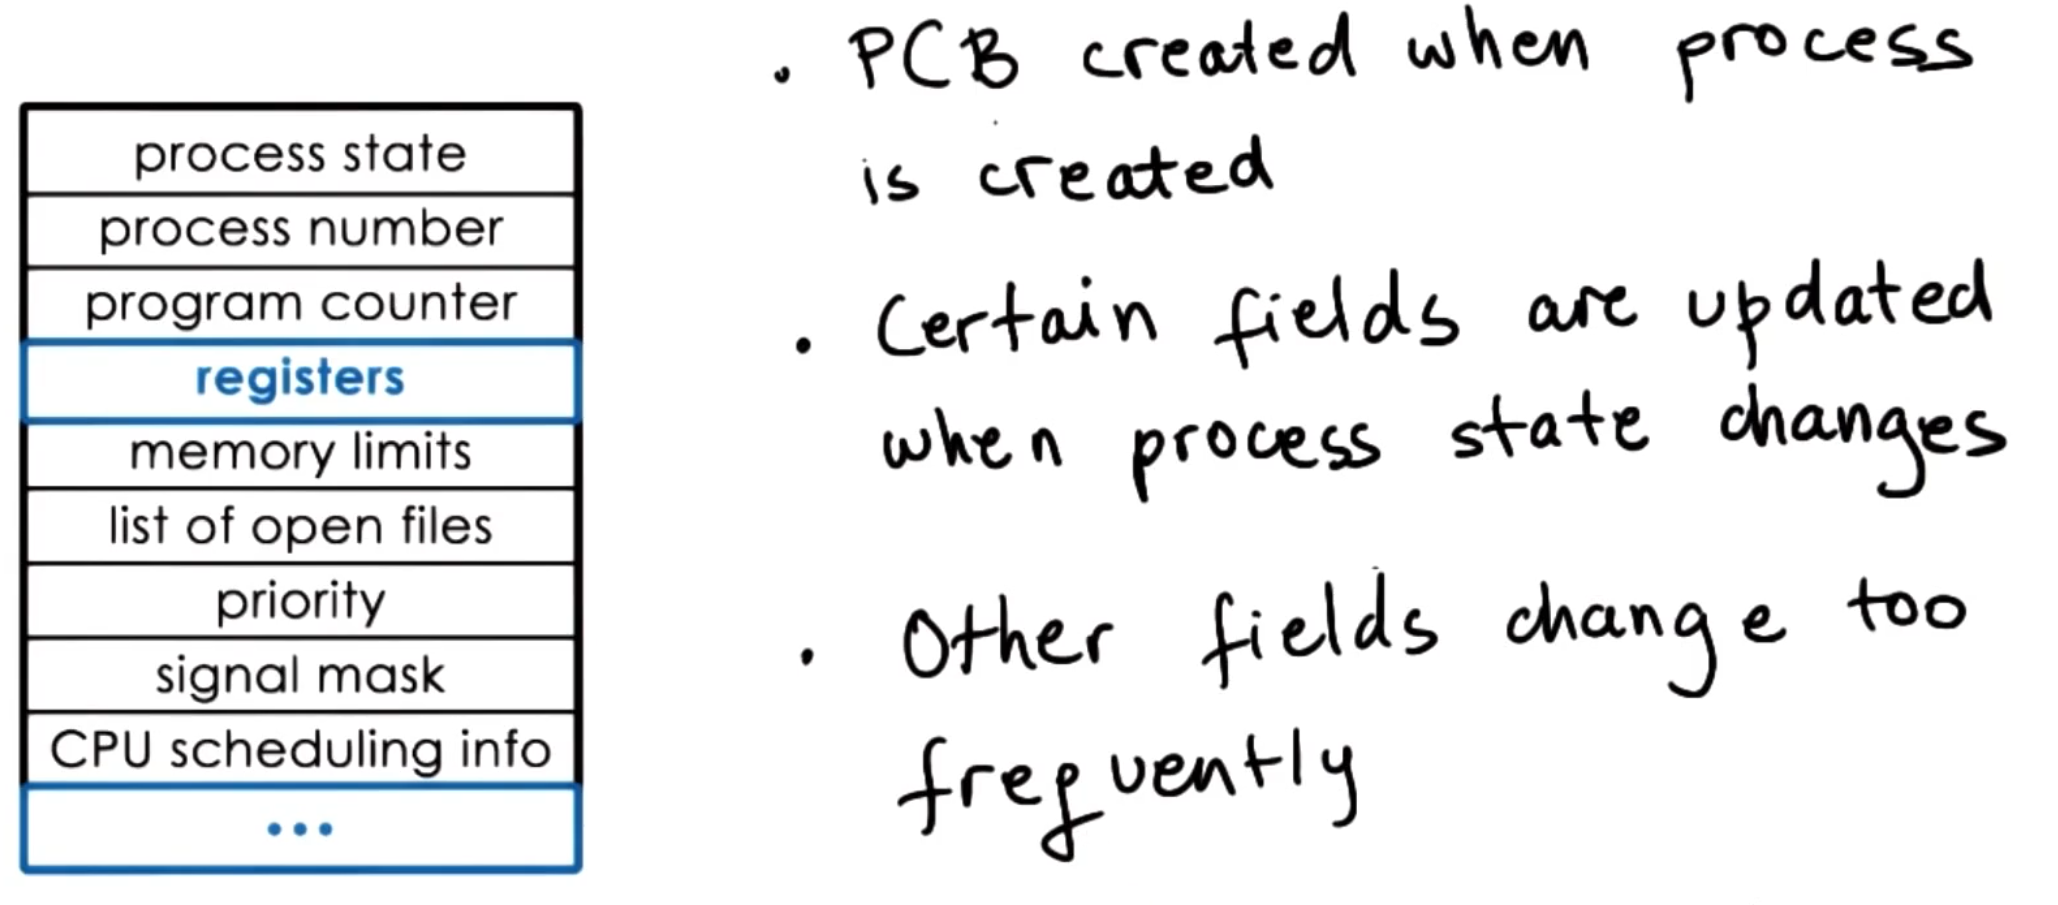 process state
process number
program counter
registers
memory limits
list of open files
priority
signal mask
CPU scheduling info
...
• PCB created when process
is created
• Certain fields are updated
when process state changes
• Other fields change too
frequently